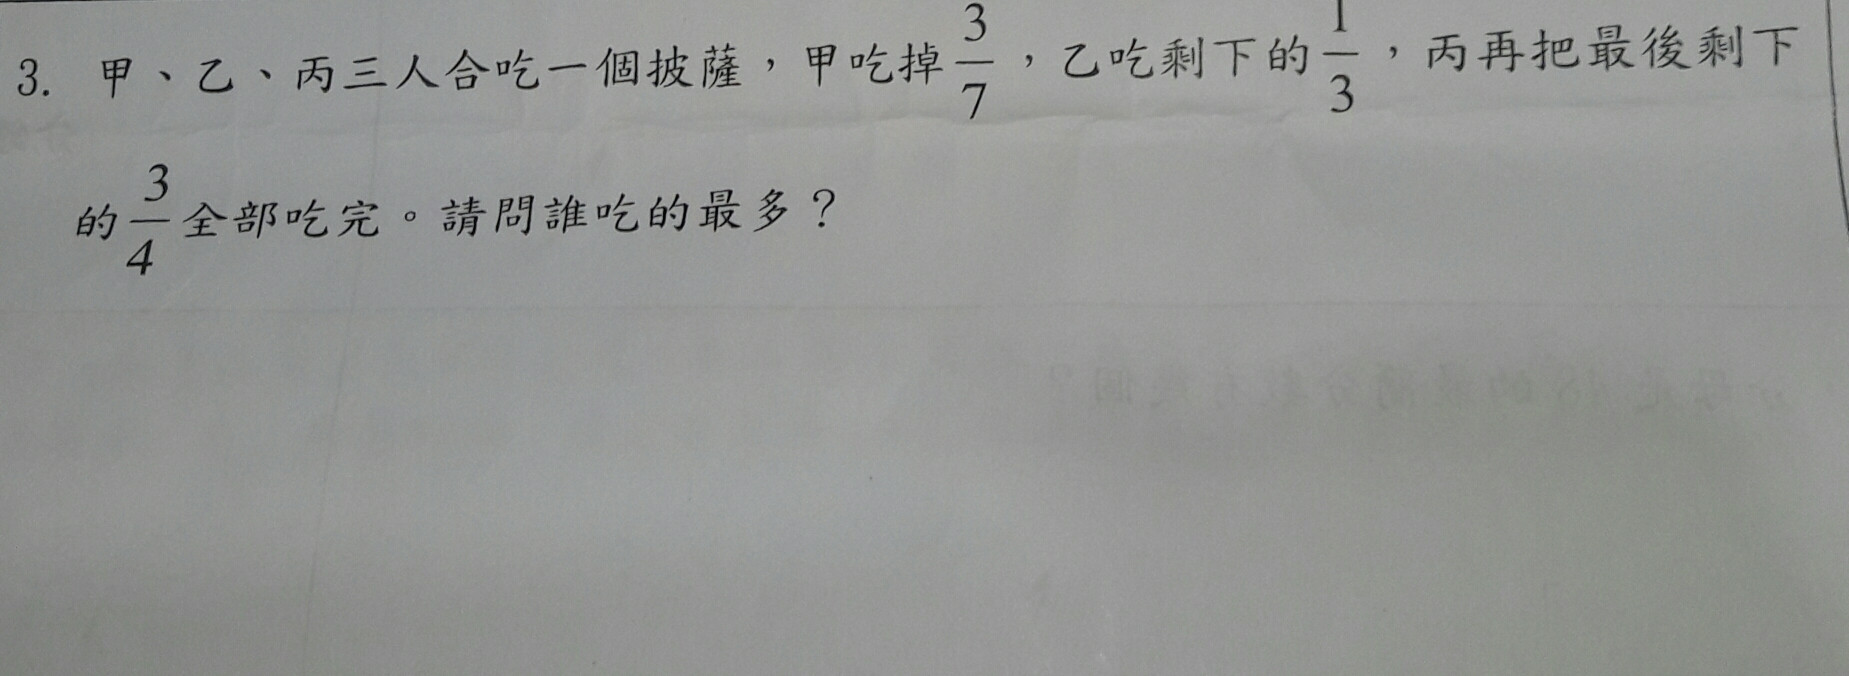 3. 甲、乙、丙三人合吃一個披薩，甲吃掉3/7，乙吃剩下的1/3，丙再把最後剩下
的3/4全部吃完。請問誰吃的最多？